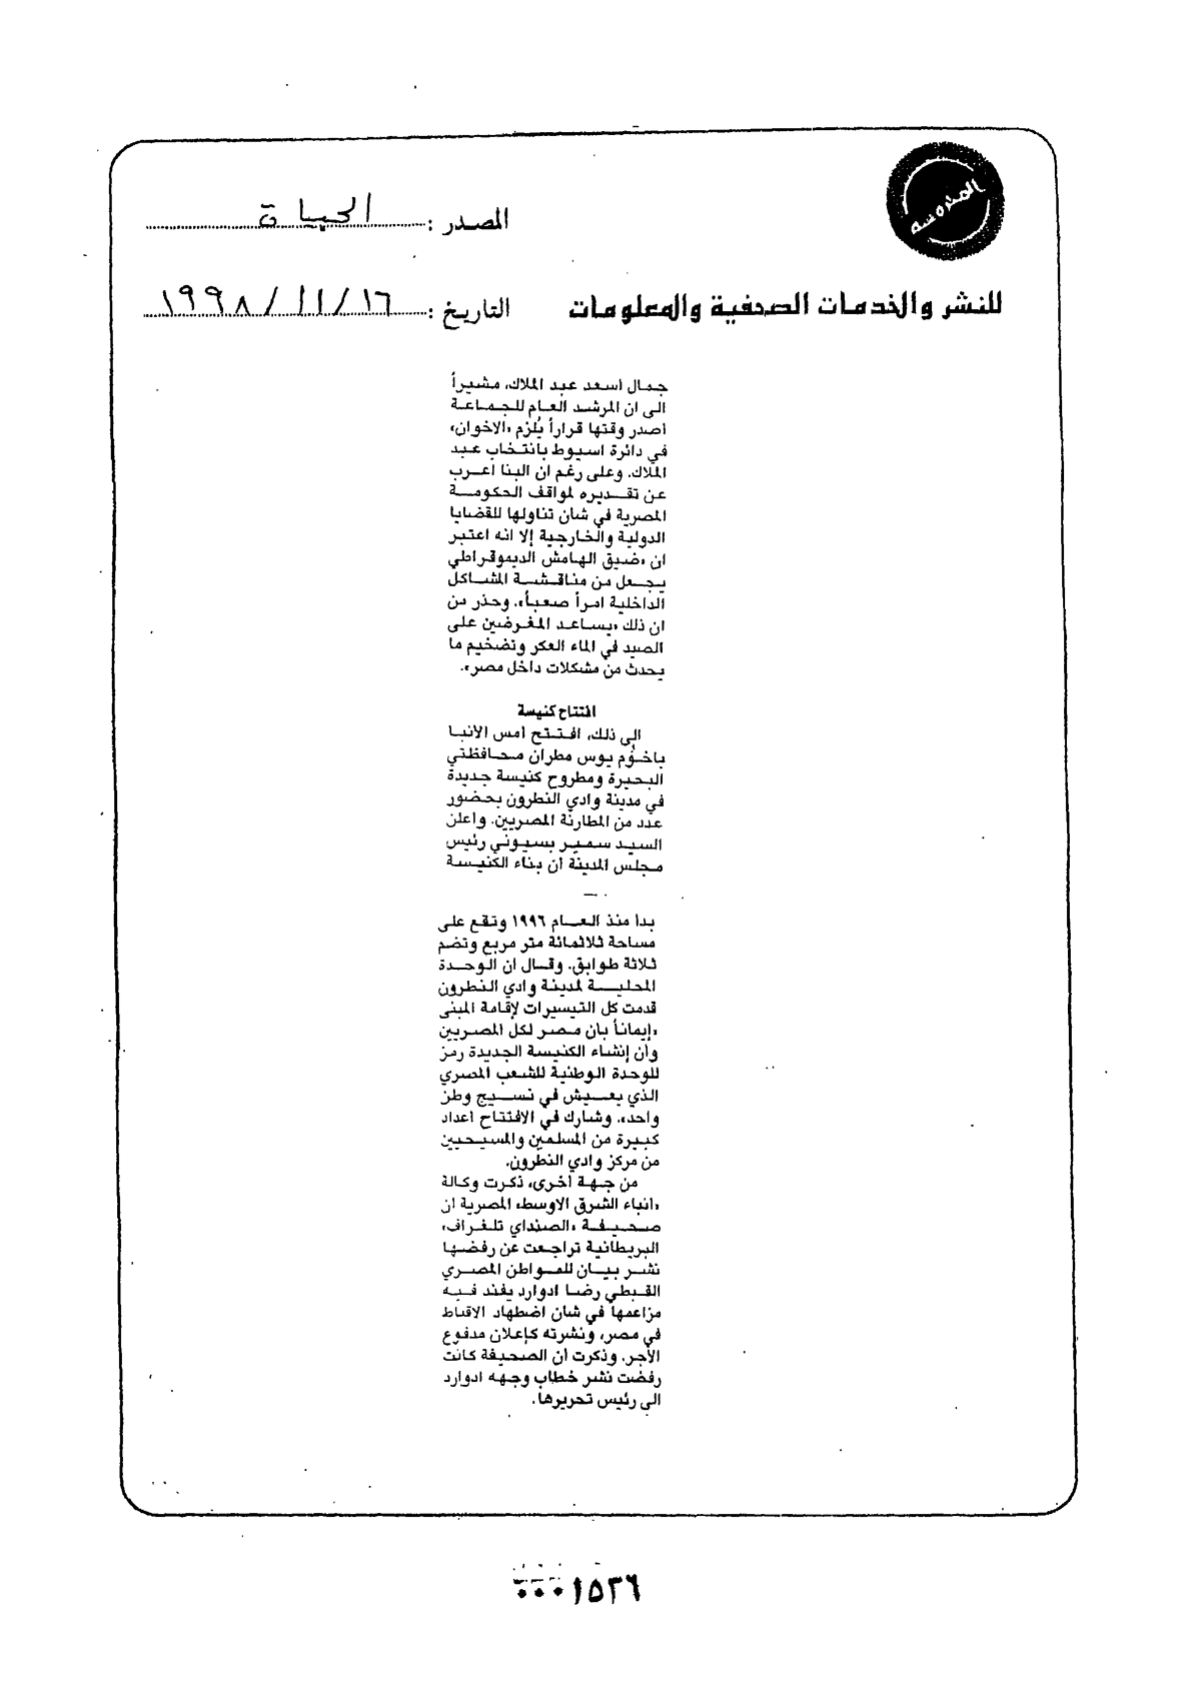 المدوسه
المصدر : الحياة
للنشر والخدمات الصحفية والمعلومات
التاريخ : ١٩٩٨/١١/١٦
جمال اسعد عبد الملاك، مشيراً
الى ان المرشد العام للجماعة
اصدر وقتها قراراً يُلزم «الاخوان»
في دائرة اسيوط بانتخاب عبد
الملاك. وعلى رغم ان البنا اعرب
عن تقديره لمواقف الحكومة
المصرية في شان تناولها للقضايا
الدولية والخارجية إلا انه اعتبر
ان «ضيق الهامش الديموقراطي
يجعل من مناقشة المشاكل
الداخلية امراً صعباً». وحذر من
ان ذلك «يساعد المغرضين على
الصيد في الماء العكر وتضخيم ما
يحدث من مشكلات داخل مصر».
افتتاح كنيسة
الى ذلك، افتتح امس الأنبا
باخوم يوس مطران محافظتي
البحيرة ومطروح كنيسة جديدة
في مدينة وادي النطرون بحضور
عدد من المطارنة المصريين. واعلن
السيد سمير بسيوني رئيس
مجلس المدينة ان بناء الكنيسة
بدا منذ العام ١٩٩٦ وتقع على
مساحة ثلاثمائة متر مربع وتضم
ثلاثة طوابق. وقال ان الوحدة
المحلية لمدينة وادي النطرون
قدمت كل التيسيرات لإقامة المبنى
«إيماناً بان مصر لكل المصريين
وأن إنشاء الكنيسة الجديدة رمز
للوحدة الوطنية للشعب المصري
الذي يعيش في نسيج وطن
واحد». وشارك في الافتتاح أعداد
كبيرة من المسلمين والمسيحيين
من مركز وادي النطرون.
من جهة أخرى، ذكرت وكالة
«انباء الشرق الاوسط» المصرية ان
صحيفة «الصنداي تلغراف»
البريطانية تراجعت عن رفضها
نشر بيان للمواطن المصري
القبطي رضا ادوارد يفند فيه
مزاعمها في شان اضطهاد الاقباط
في مصر، ونشرته كإعلان مدفوع
الأجر. وذكرت ان الصحيفة كانت
رفضت نشر خطاب وجهه ادوارد
الى رئيس تحريرها.
٠٠٠١٥٣٦